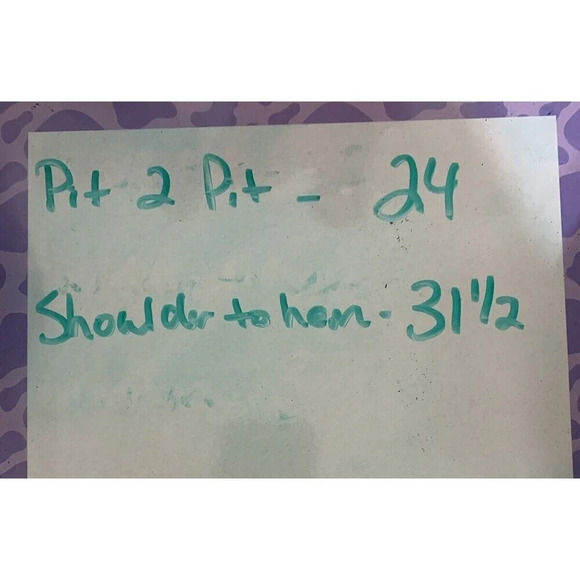 Pit 2 Pit - 24
Shoulder to hem - 31 1/2